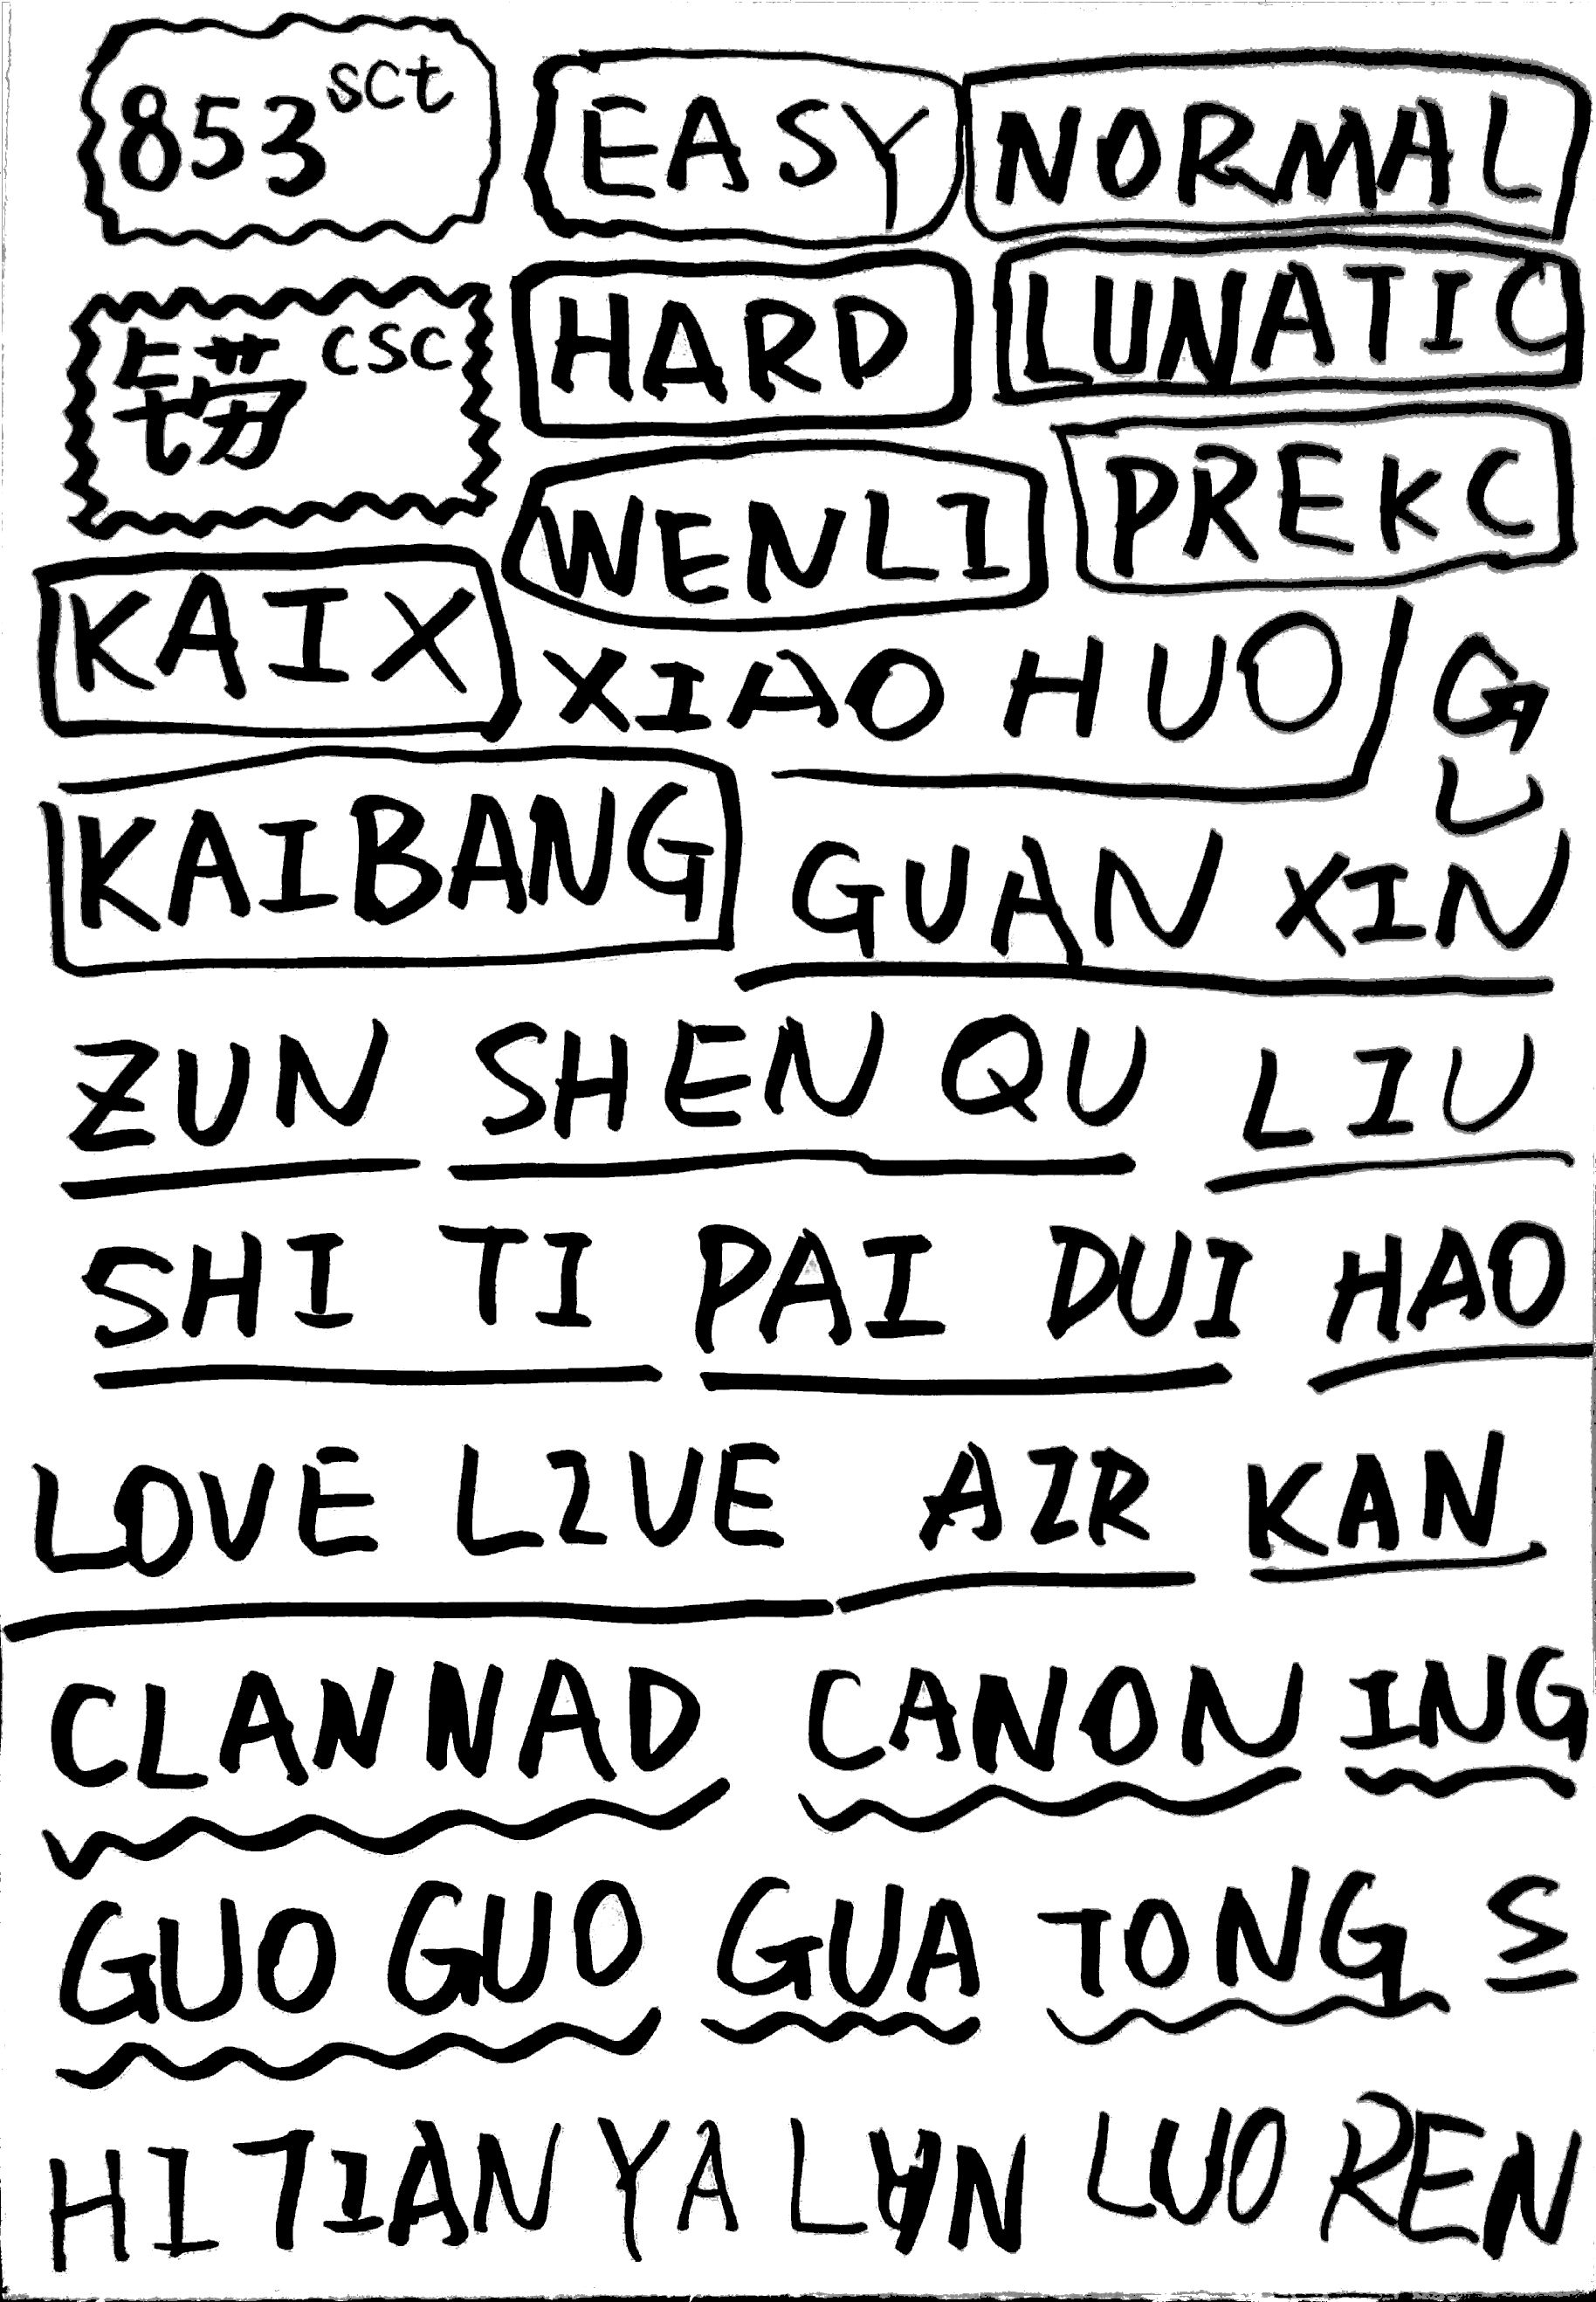 853 sct EASY NORMAL
铹 csc HARD LUNATIC
WENLI PREKC
KAIX XIAO HUO GU
KAIBANG GUAN XIN
ZUN SHEN QU LIU
SHI TI PAI DUI HAO
LOVE LIVE AIR KAN
CLANNAD CANON ING
GUO GUO GUA TONG Σ
HI TIAN YA LUO REN